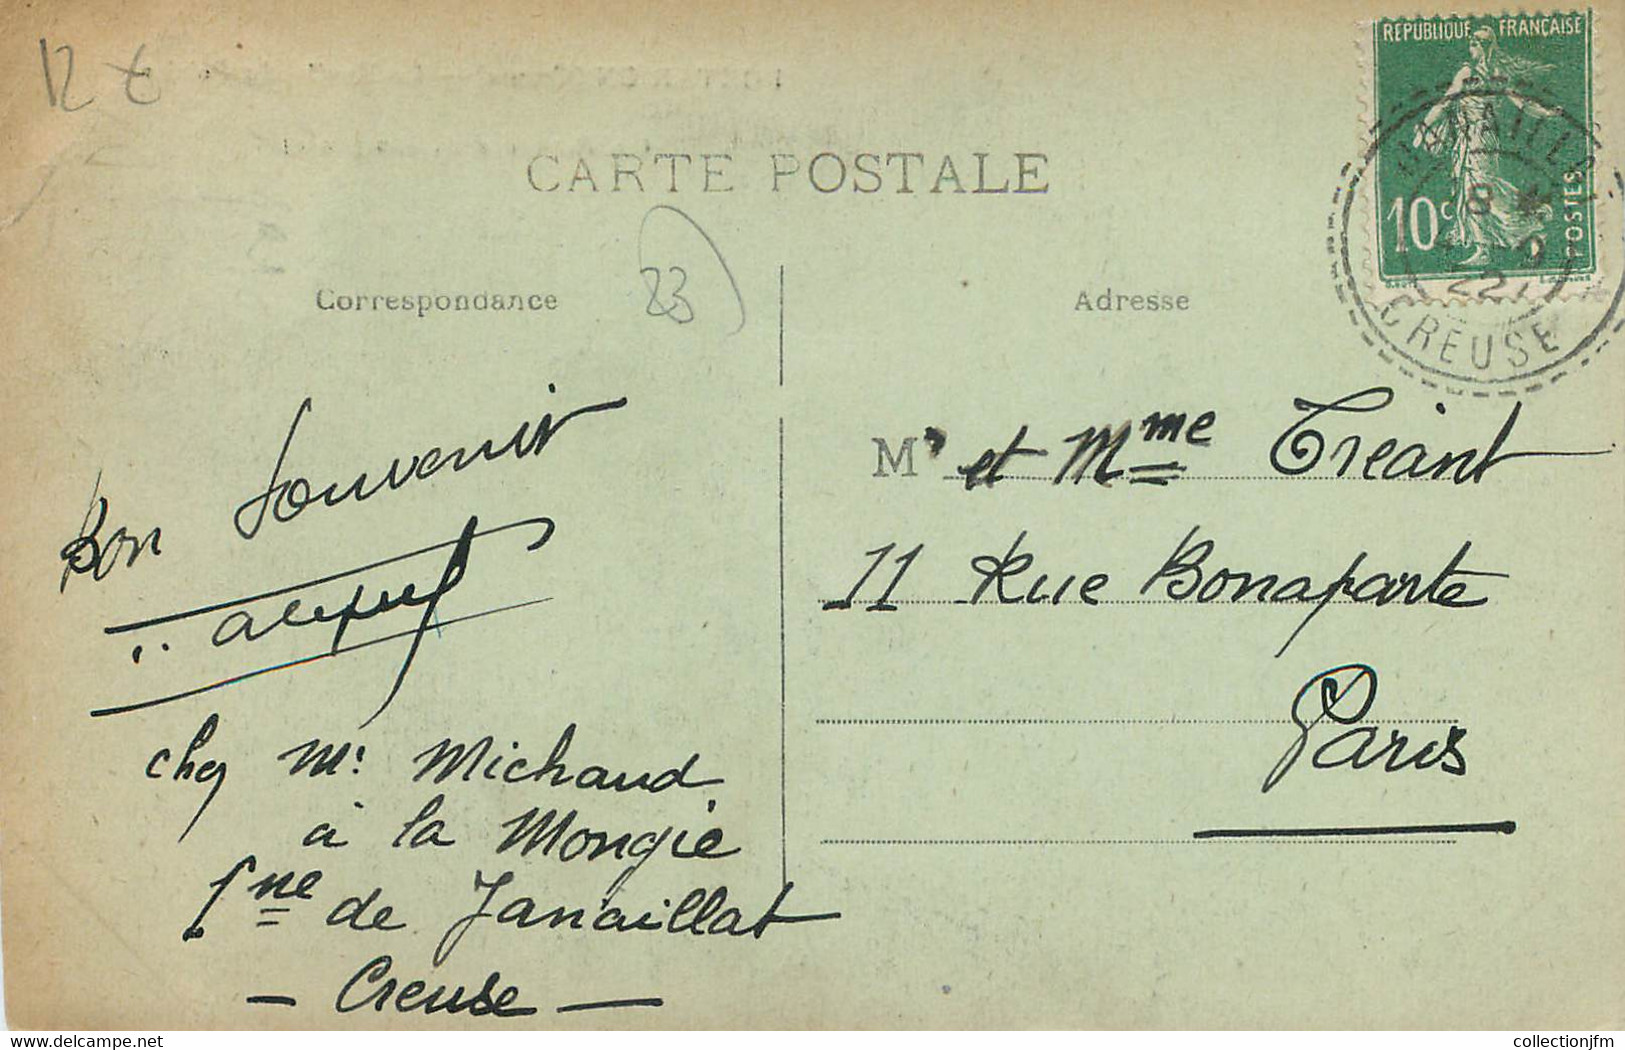 12 €
CARTE POSTALE
REPUBLIQUE FRANÇAISE
10c
POSTES
JANAILLAT
22
CREUSE
Correspondance
23
Adresse
Bon Souvenir
chez Mr Michaud
à la Mongie
Cne de Janaillat
- Creuse -
Mr et Mme Treant
11 Rue Bonaparte
Paris
collectionjfm